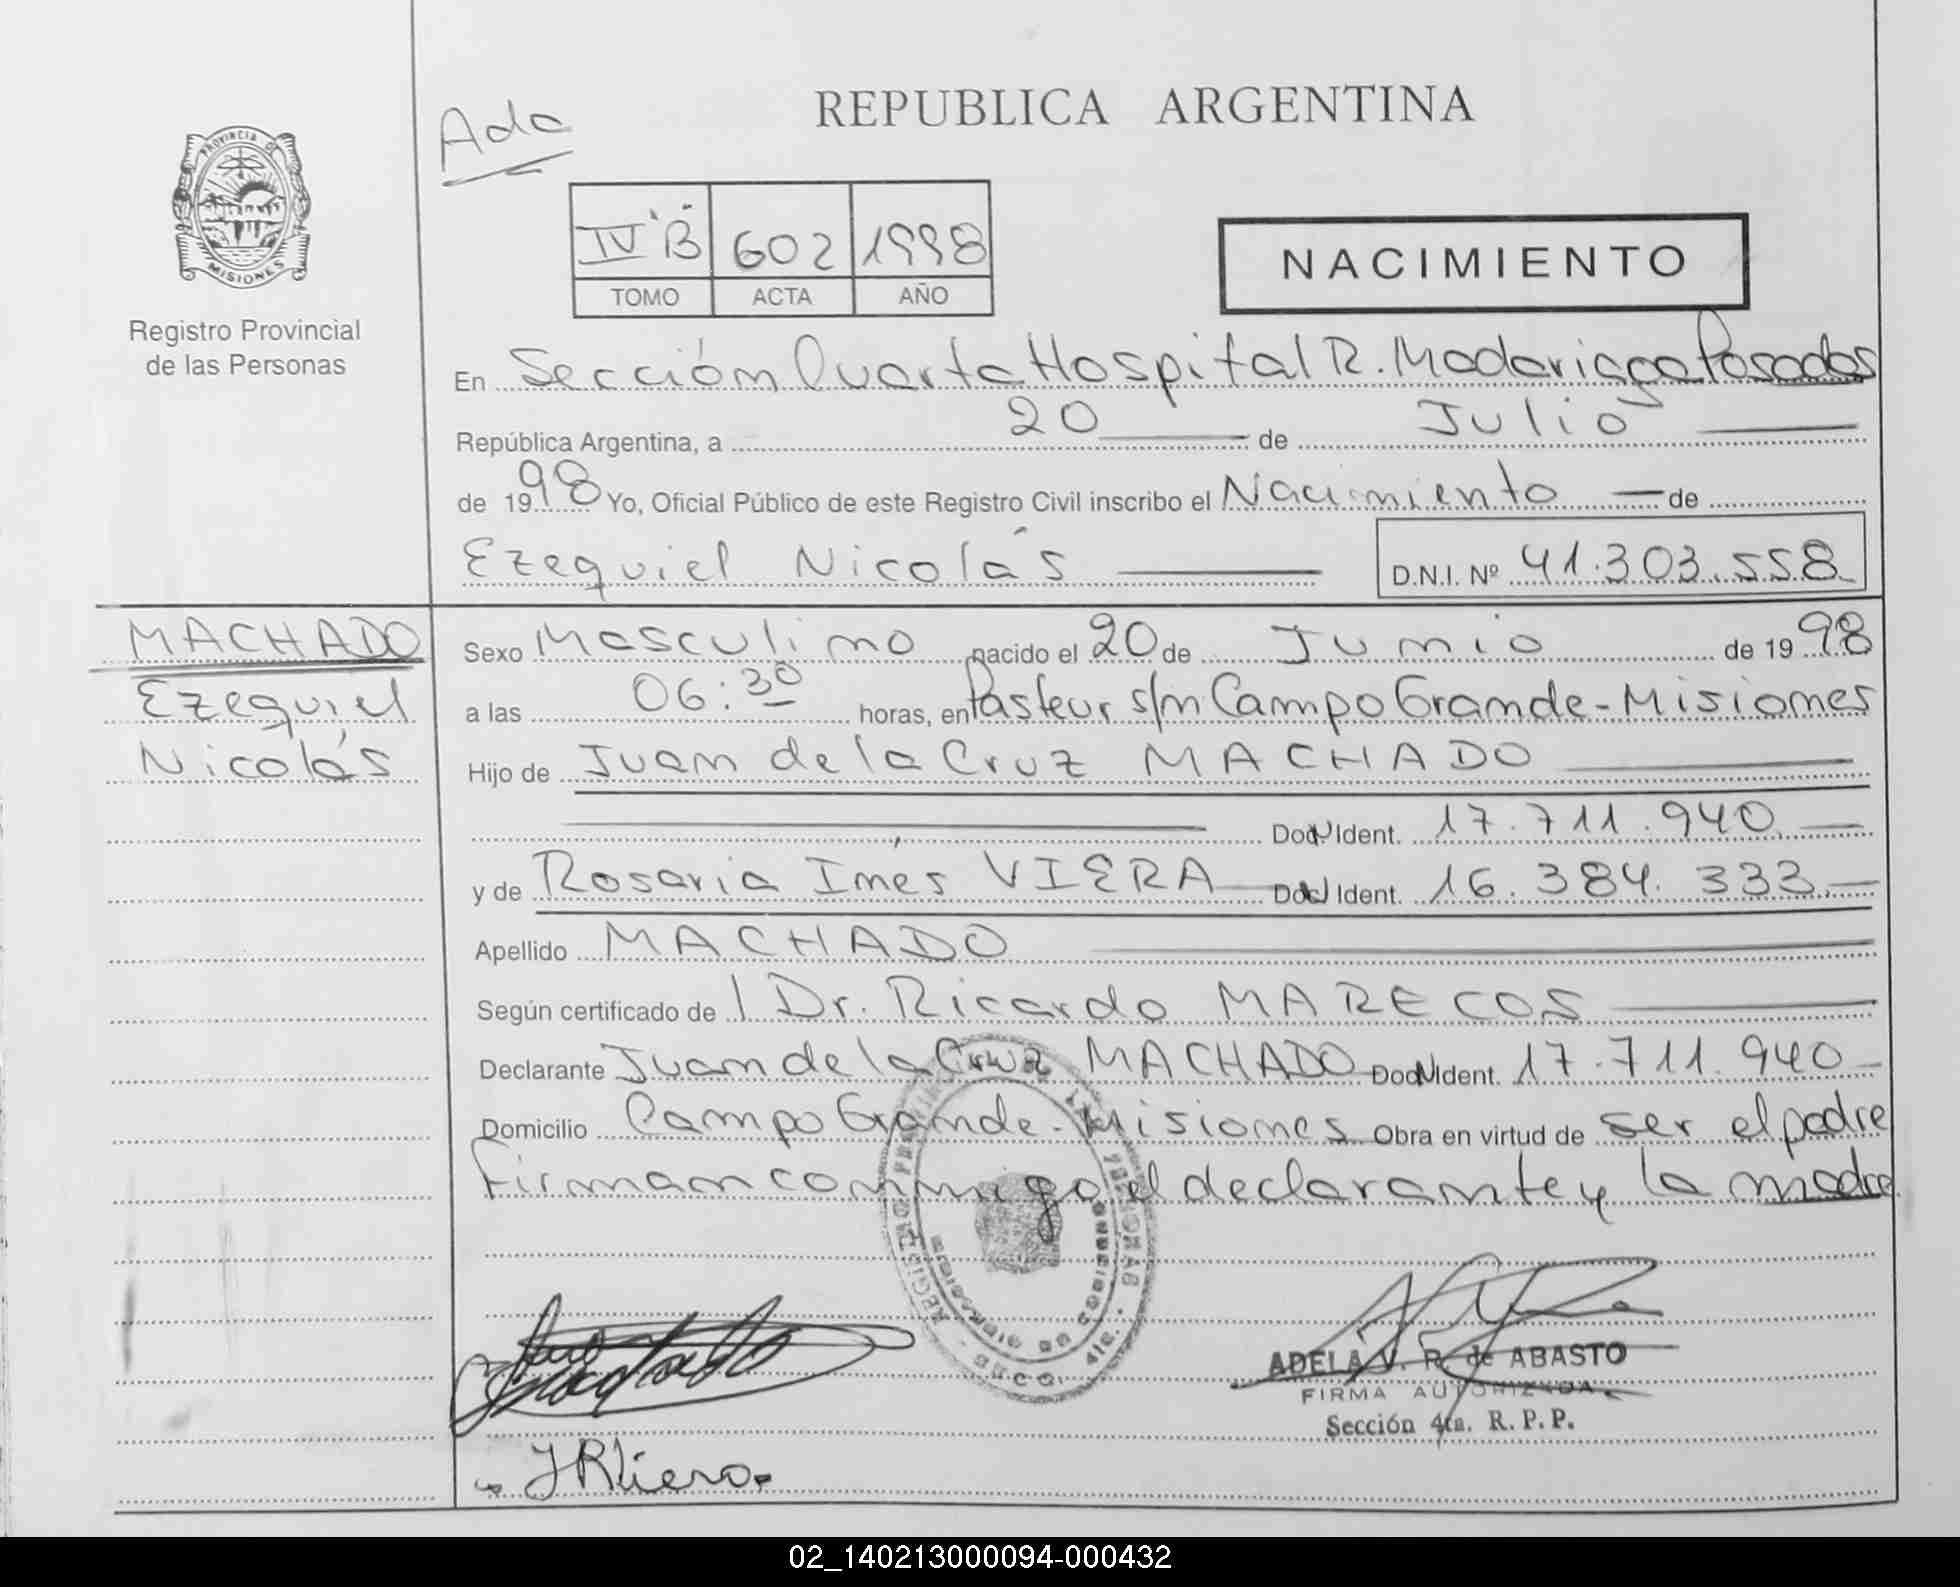 REPUBLICA ARGENTINA
Ada
PROVINCIA DE
MISIONES
Registro Provincial
de las Personas
IV "B" 602 1998
TOMO ACTA AÑO
NACIMIENTO
En Sección Cuarta Hospital R. Madariaga Posadas
República Argentina, a 20 de Julio
de 1998 Yo, Oficial Público de este Registro Civil inscribo el Nacimiento de
Ezequiel Nicolás D.N.I. Nº 41.303.558
MACHADO
Ezequiel
Nicolás
Sexo Masculino nacido el 20 de Junio de 1998
a las 06:30 horas, en Pasteur s/n Campo Grande - Misiones
Hijo de Juan de la Cruz MACHADO
Doc. Ident. 17.711.940
y de Rosaria Inés VIERA Doc. Ident. 16.384.333
Apellido MACHADO
Según certificado de Dr. Ricardo MARECOS
Declarante Juan de la Cruz MACHADO Doc. Ident. 17.711.940
Domicilio Campo Grande - Misiones Obra en virtud de ser el padre
Firman conmigo el declarante y la madre
ADELA V. R. de ABASTO
FIRMA AUTORIZADA
Sección 4ta. R. P. P.
02_140213000094-000432